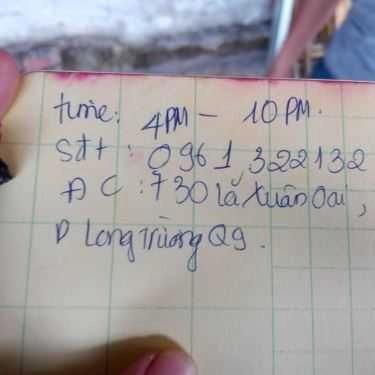 time: 4PM - 10PM.
Sđt: 0961,322132
ĐC: 730 lã Xuân Oai,
P Long Trường Q9.